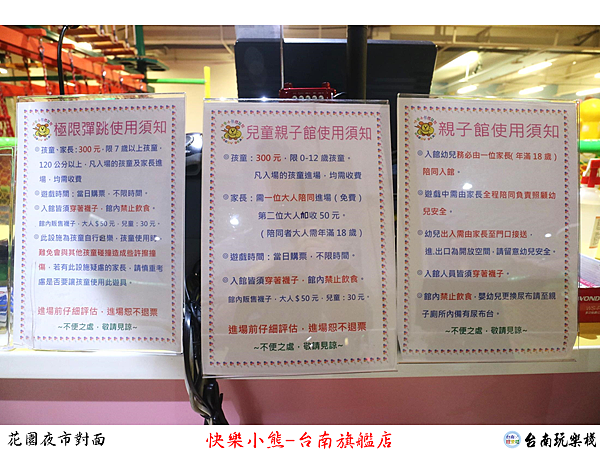 極限彈跳使用須知
孩童、家長：300元，限7歲以上孩童，
120公分以上，凡入場的孩童及家長進
場，均需收費
遊戲時間：當日購票，不限時間。
入館皆須穿著襪子，館內禁止飲食。
館內販售襪子，大人$50元，兒童：30元。
此設施為孩童自行遊樂，孩童使用時
難免會與其他孩童碰撞造成些許擦撞
傷，若有此設施疑慮的家長，請慎重考
慮是否要讓孩童使用此遊具。
進場前仔細評估，進場恕不退票
~不便之處，敬請見諒~
兒童親子館使用須知
孩童：300元，限0-12歲孩童。
凡入場的孩童進場，均需收費。
家長：需一位大人陪同進場（免費）
第二位大人加收50元。
（陪同者大人需年滿18歲）
遊戲時間：當日購票，不限時間。
入館皆須穿著襪子，館內禁止飲食。
館內販售襪子，大人$50元，兒童：30元。
進場前仔細評估，進場恕不退票
~不便之處，敬請見諒~
親子館使用須知
入館幼兒務必由一位家長(年滿18歲)
陪同入館。
遊戲中需由家長全程陪同負責照顧幼
兒安全。
幼兒出入需由家長至門口接送，
進、出口為開放空間，請留意幼兒安全。
入館人員皆須穿著襪子。
館內禁止飲食，嬰幼兒更換尿布請至親
子廁所內備有尿布台。
~不便之處，敬請見諒~
花園夜市對面
快樂小熊-台南旗艦店
台南玩樂棧